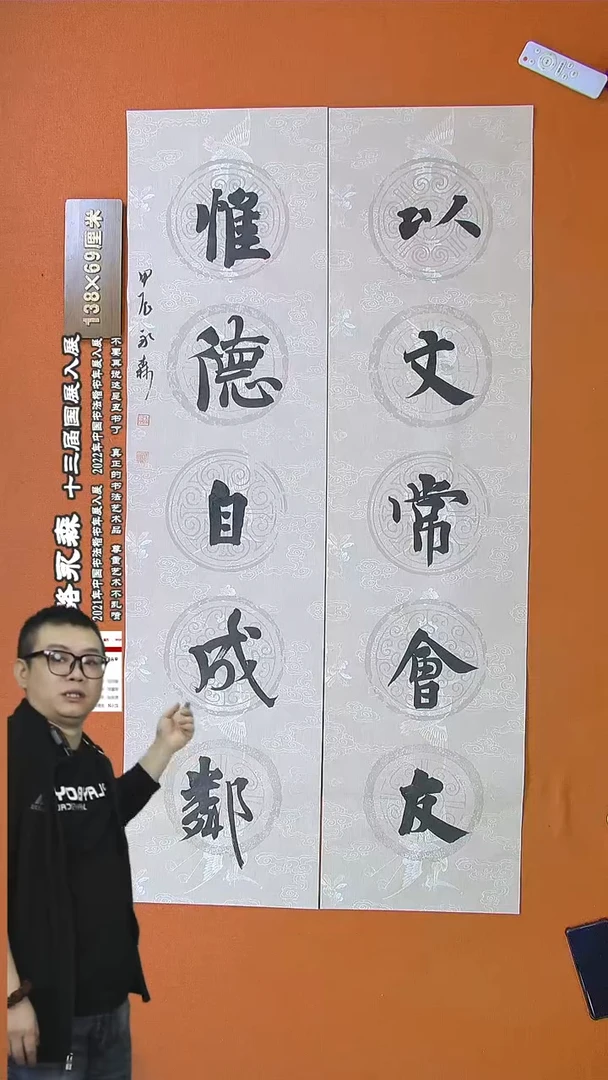 以文常會友
惟德自成鄰
甲辰永森
138×69厘米
洛永森 十三届国展入展
2021年中国书法楷书年展入展 2022年中国书法楷书年展入展
不要再说这是丑书了 真正的书法艺术品 尊重艺术不乱喷